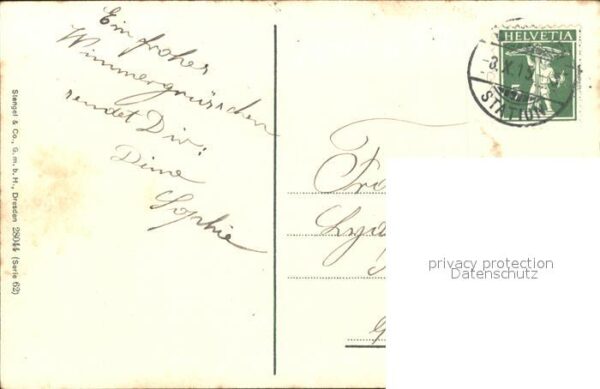 Ein frohes
Wimmergrüsschen
sendet Dir:
Deine
Sophie
Stengel & Co., G. m. b. H., Dresden 28044 (Serie 62)
HELVETIA
STATION
Lyd
privacy protection
Datenschutz